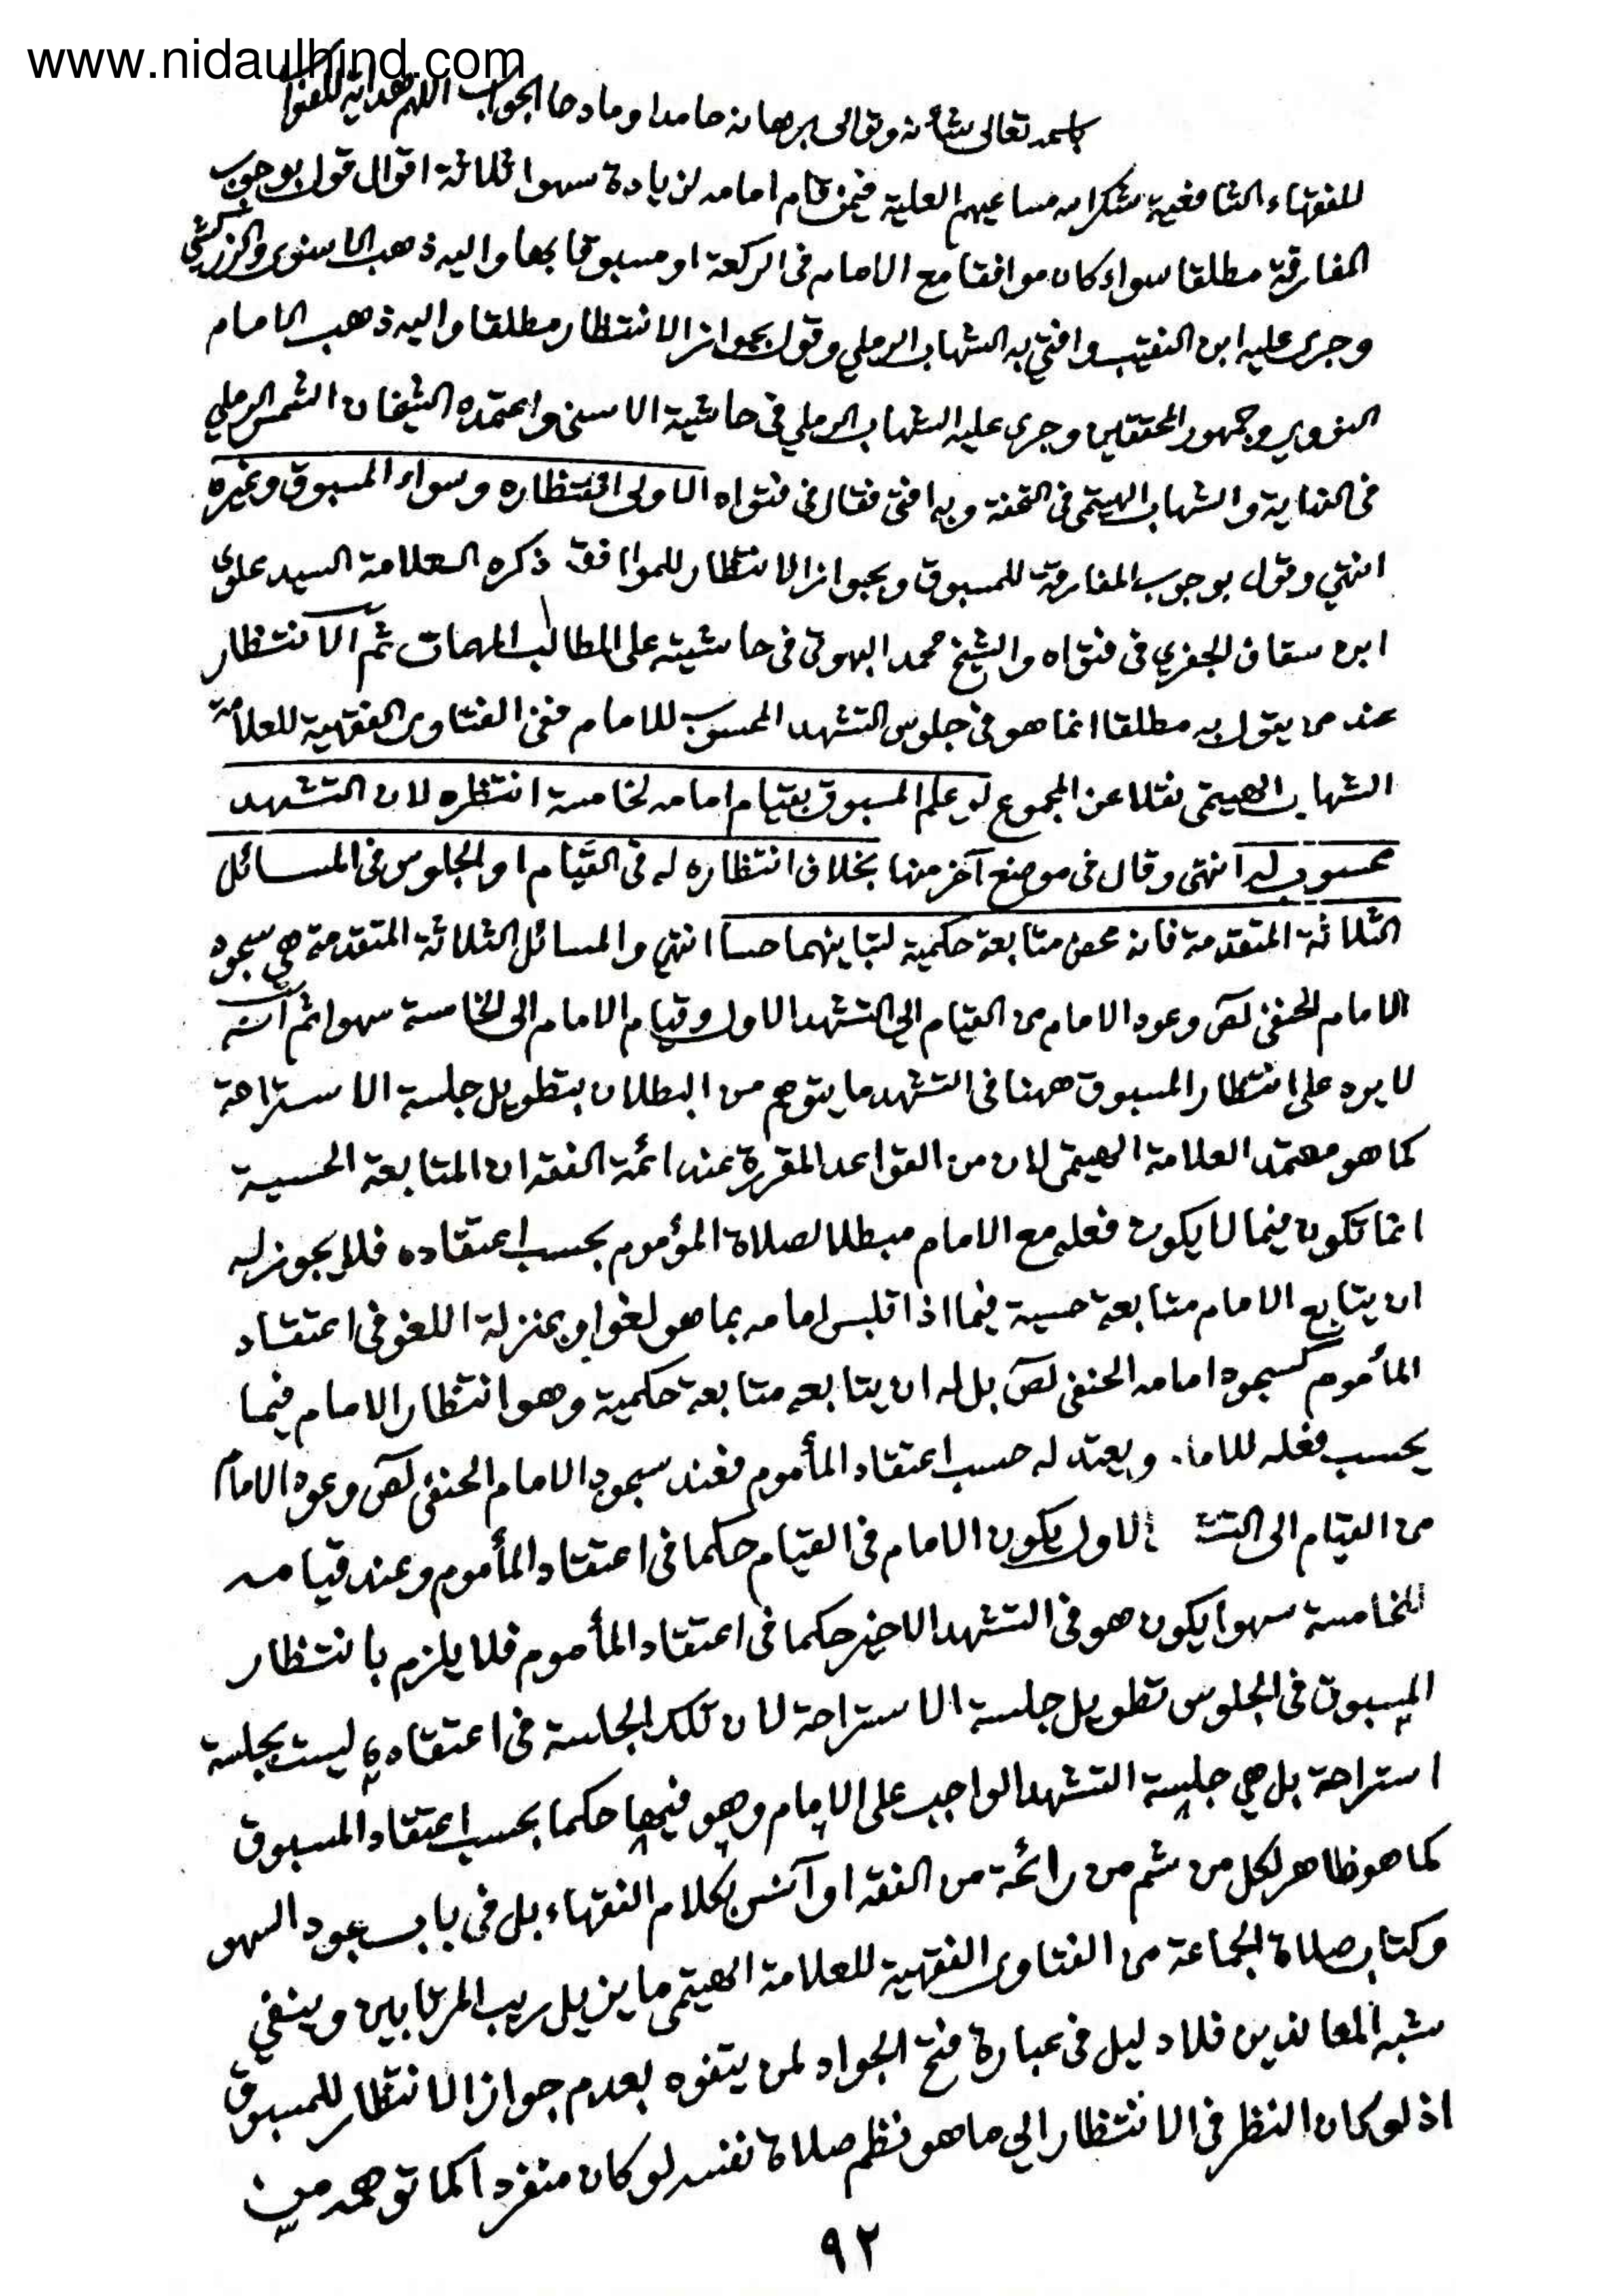 www.nidaulhind.com
باسمه تعالى شأنه وتوالى برهانه حامدا ومادحا الجواب اللهم هداية للصواب
للفقهاء الشافعية شكر الله مساعيهم العلية فيمن قام امامه لزيادة سهوا ثلاثة اقوال قول بوجوب
المفارقة مطلقا سواء كان موافقا مع الامام فى الركعة او مسبوقا بها واليه ذهب الاسنوى والزركشي
وجرى عليه ابن النقيب وافتي به الشهاب الرملي وقول بجواز الانتظار مطلقا واليه ذهب الامام
النووي وجمهور المحققين وجرى عليه الشهاب الرملي فى حاشية الاسنى واعتمده الشيخان الشمس الرملي
فى النهاية والشهاب الهيتمى فى التحفة وبه افتى فقال فى فتواه الاولى انتظاره وسواء المسبوق وغيره
انتهي وقول بوجوب المفارقة للمسبوق وبجواز الانتظار للموافق ذكره العلامة السيد علوي
ابن سقاف الجفري فى فتواه والشيخ محمد البهوتى فى حاشيته على المطالب المهمات ثم الانتظار
عند من يقول به مطلقا انما هو فى جلوس التشهد المحسوب للامام ففى الفتاوى الفقهية للعلامة
الشهاب الهيتمى نقلا عن المجموع لو علم المسبوق بقيام امامه لخامسة انتظره لان التشهد
محسوب له انتهى وقال فى موضع آخر منها بخلاف انتظاره له فى القيام او الجلوس فى المسائل
الثلاثة المتقدمة فانه محض متابعة حكمية لتباينهما حسا انتهي والمسائل الثلاثة المتقدمة هي سجود
الامام الحنفى لص وعود الامام من القيام الي التشهد الاول وقيام الامام الى الخامسة سهوا ثم انه
لا يرد على انتظار المسبوق ههنا فى التشهد ما يتوهم من البطلان بتطويل جلسة الاستراحة
كما هو معتمد العلامة الهيتمى لان من القواعد المقررة عند ائمة الفقه ان المتابعة الحسية
انما تكون فيما لا يكون فعله مع الامام مبطلا لصلاة المؤموم بحسب اعتقاده فلا يجوز له
ان يتابع الامام متابعة حسية فيما اذا تلبس امامه بما هو لغو او بمنزلة اللغو فى اعتقاد
المأموم كسجود امامه الحنفى لص بل له ان يتابعه متابعة حكمية وهو انتظار الامام فيما
يحسب فعله للاما. ويعتد له حسب اعتقاد المأموم فعند سجود الامام الحنفى لص وعود الامام
من القيام الى التشـ الاول يكون الامام فى القيام حكما فى اعتقاد المأموم وعند قيامه
للخامسة سهوا يكون هو فى التشهد الاخير حكما فى اعتقاد المأموم فلا يلزم بانتظار
المسبوق فى الجلوس تطويل جلسة الاستراحة لان تلك الجلسة فى اعتقاده ليست بجلسة
استراحة بل هي جلسة التشهد الواجب على الامام وهو فيها حكما بحسب اعتقاد المسبوق
كما هو ظاهر لكل من شم من رائحة من الفقه او آنس بكلام الفقهاء بل فى باب سجود السهو
وكتاب صلاة الجماعة من الفتاوى الفقهية للعلامة الهيتمى ما يزيل ريب المرتابين وينفي
شبه المعاندين فلا دليل فى عبارة فتح الجواد لمن يتفوه بعدم جواز الانتظار للمسبوق
اذ لو كان النظر فى الانتظار الي ما هو نظم صلاة نفسه لو كان منفردا كما توهمه من
٩٢